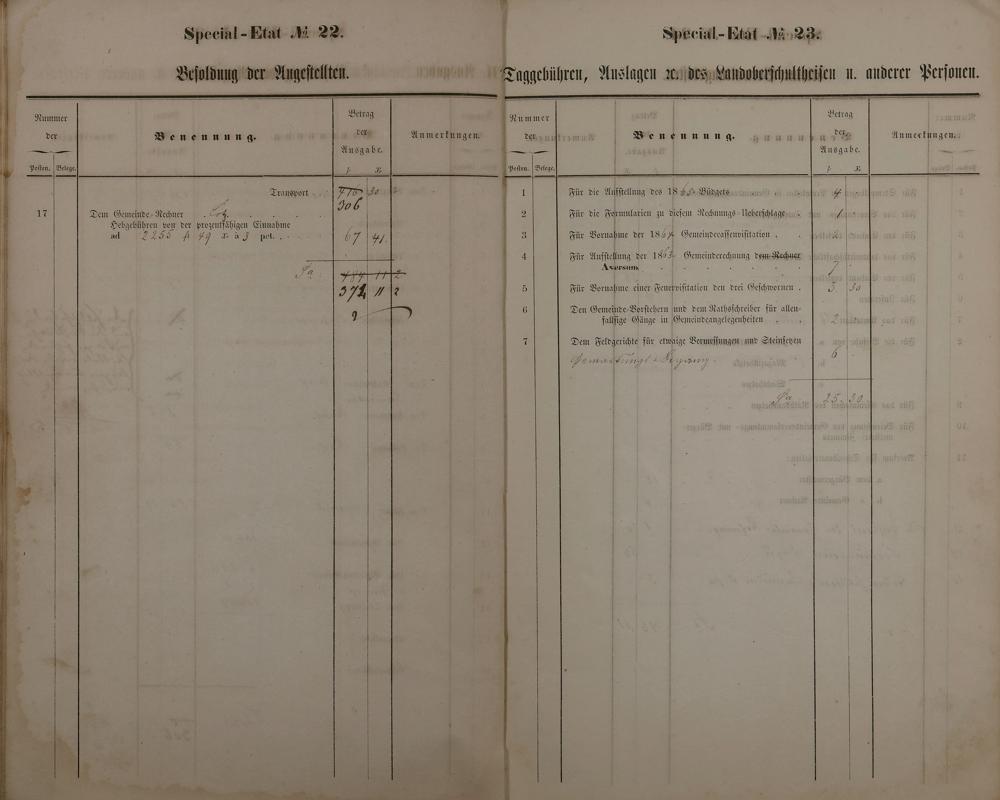 Special-Etat № 22.
Besoldung der Angestellten.
Nummer der
Posten. Belege.
Benennung.
Betrag der Ausgabe.
f. x.
Anmerkungen.
Transport
306
17 Dem Gemeinde-Rechner
Hebgebühren von der prozentsähigen Einnahme
ad 2255 f 49 x à 3 pct. 67 41
Sa. 484 11 2
372 11 2
Special-Etat № 23.
Taggebühren, Auslagen ꝛc. des Landoberschultheisen u. anderer Personen.
Nummer der
Posten. Belege.
Benennung.
Betrag der Ausgabe.
f. x.
Anmerkungen.
1 Für die Aufstellung des 1865 Büdgets 4
2 Für die Formularien zu diesem Rechnungs-Ueberschlage 1
3 Für Vornahme der 1864 Gemeindecassenvisitation 2
4 Für Aufstellung der 1863 Gemeinderechnung dem Rechner
Aversum 7
5 Für Vornahme einer Feuervisitation den drei Geschwornen 3 30
6 Den Gemeinde-Vorstehern und dem Rathsschreiber für allen-
fallsige Gänge in Gemeindeangelegenheiten 2
7 Dem Feldgerichte für etwaige Vermessungen und Steinsetzen
6
Sa. 25 30